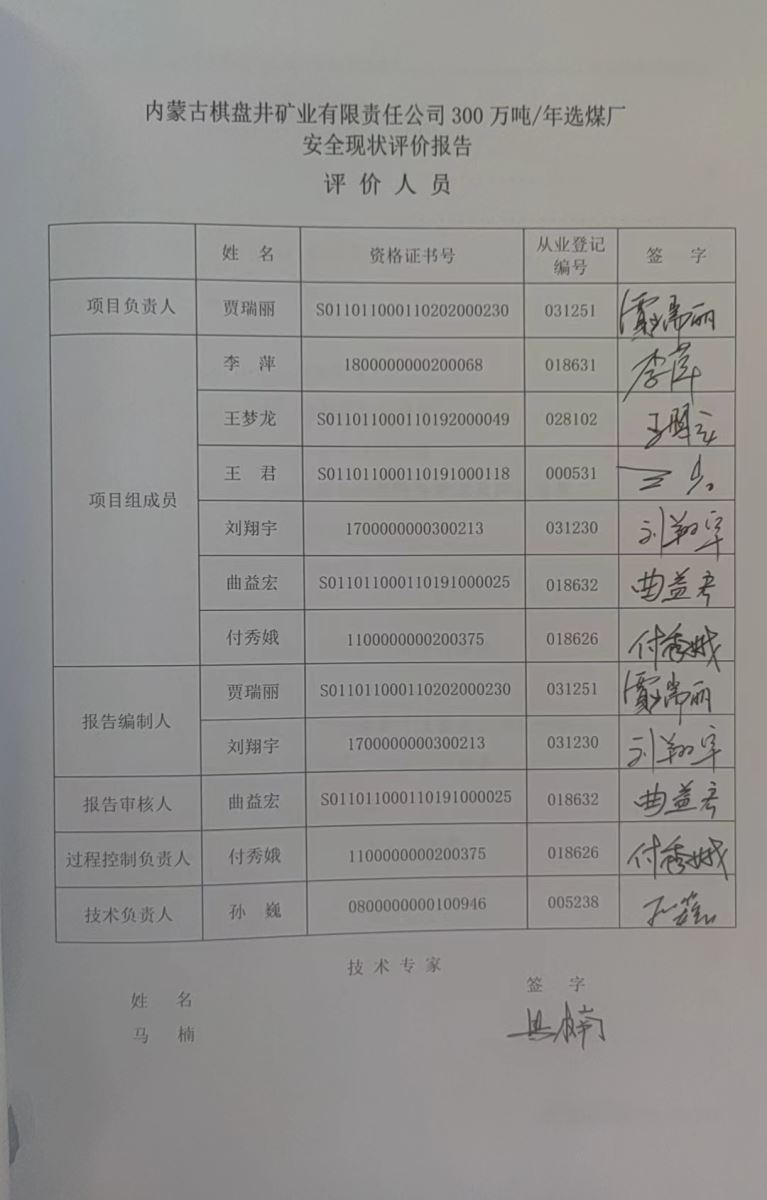 内蒙古棋盘井矿业有限责任公司300万吨/年选煤厂
安全现状评价报告
评价人员
姓 名 资格证书号 从业登记编号 签 字
项目负责人 贾瑞丽 S011011000110202000230 031251 贾瑞丽
项目组成员 李 萍 1800000000200068 018631 李萍
王梦龙 S011011000110192000049 028102 王梦龙
王 君 S011011000110191000118 000531 王君
刘翔宇 1700000000300213 031230 刘翔宇
曲益宏 S011011000110191000025 018632 曲益宏
付秀娥 1100000000200375 018626 付秀娥
报告编制人 贾瑞丽 S011011000110202000230 031251 贾瑞丽
刘翔宇 1700000000300213 031230 刘翔宇
报告审核人 曲益宏 S011011000110191000025 018632 曲益宏
过程控制负责人 付秀娥 1100000000200375 018626 付秀娥
技术负责人 孙 巍 0800000000100946 005238 孙巍
技术专家
姓 名 签 字
马 楠 马楠